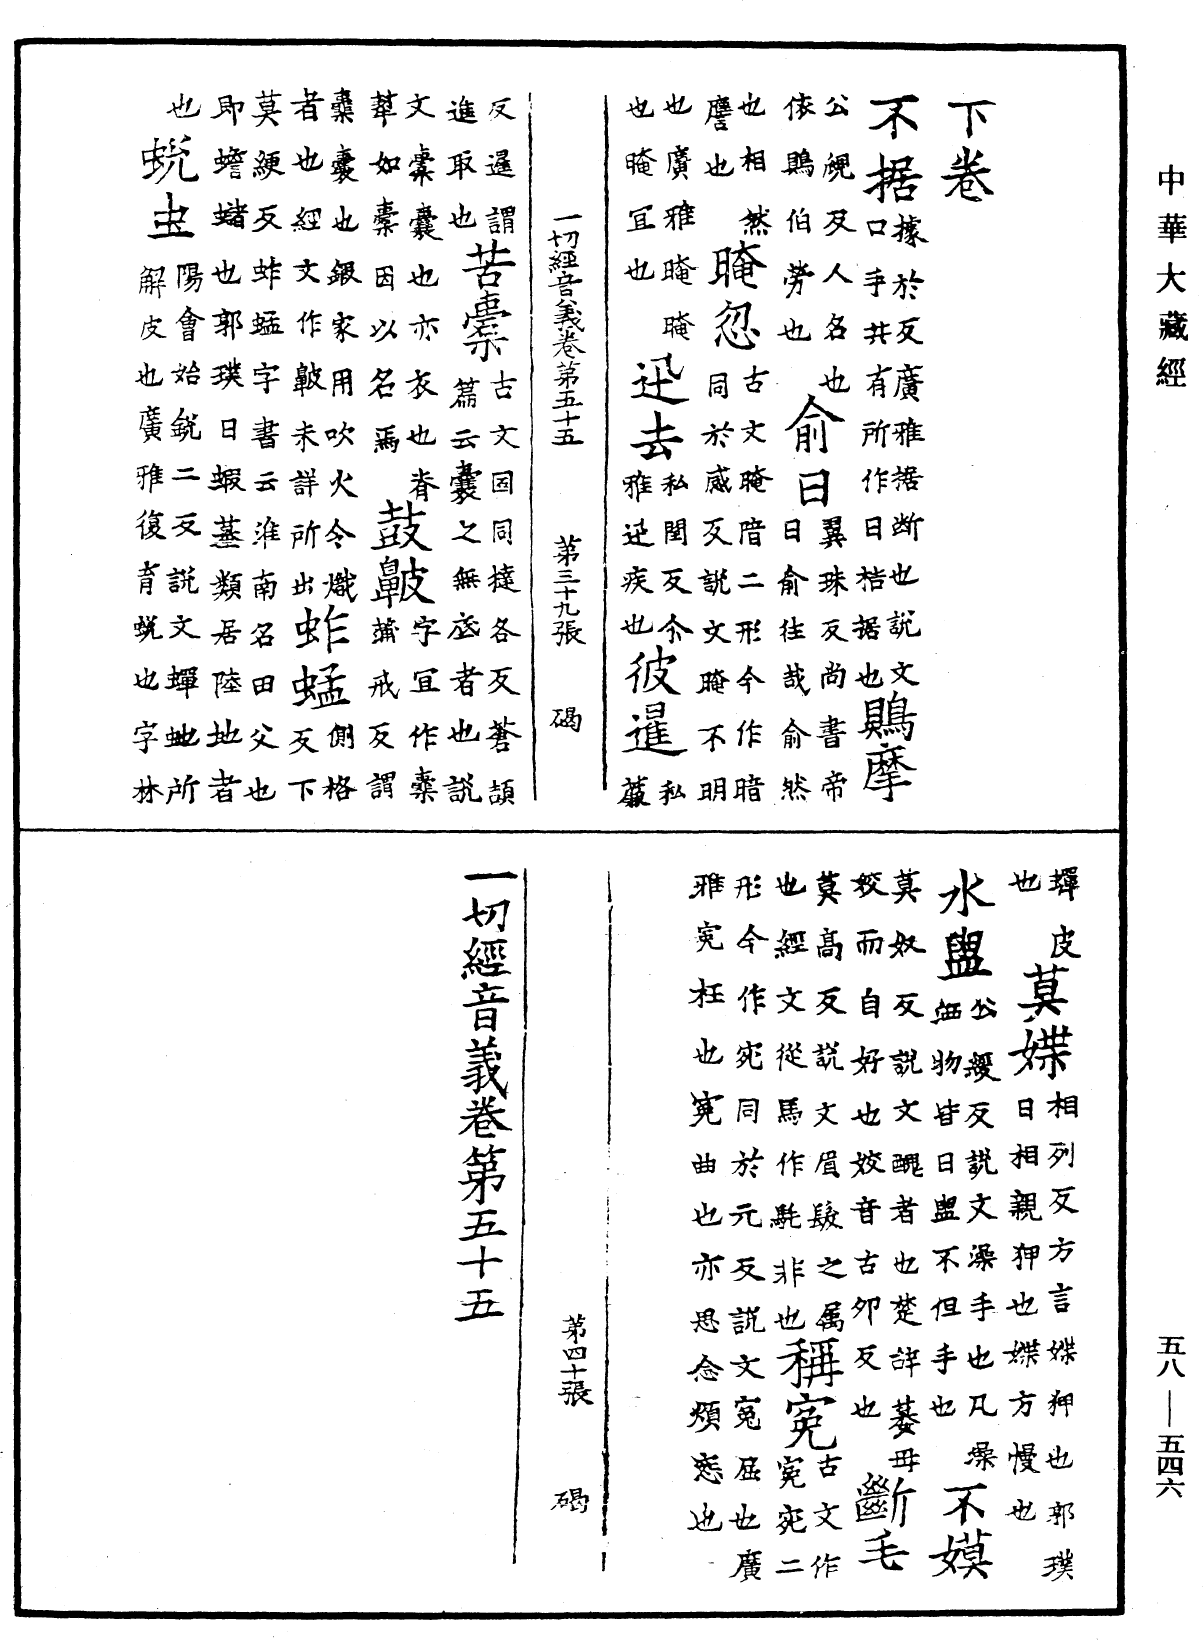 中華大藏經
下卷
不据
據於反廣雅据断也說文
口手共有所作曰桔据也
鵙摩
公覡反人名也
依鵙伯勞也
俞曰
翼珠反尚書帝
曰俞往哉俞然
也相然
譍也
晻忽
古文晻陪二形今作暗
同於感反說文晻不明
也廣雅晻晻
也晻冝也
迅去
私閏反尒
雅迅疾也
彼暹
私
蕆
一切經音義卷第五十五 第三十九張 碣
反暹謂
進取也
苦橐
古文囸同撻各反蒼頡
篇云橐之無底者也說
文橐囊也亦衣也脊
字冝作橐
鼓鞁
蒲戒反謂
韛如橐因以名焉
橐囊也鍛家用吹火令熾
者也經文作鞁未詳所出
蚱蜢
側格
反下
莫綆反蚱蜢字書云淮南名田父也
即蟾蠩也郭璞曰蝦蟇類居陸地者
也
蛻虫
陽會始銳二反說文蟬虵所
解皮也廣雅復育蛻也字林
蟬皮
也
莫媟
相列反方言媟狎也郭璞
曰相親狎也媟方慢也
水盥
公緩反說文澡手也凡澡
洒物皆曰盥不但手也
不嫫
莫奴反說文醜者也楚誶蔞毋
姣而自好也姣音古夘反也
斷毛
莫高反說文眉髮之属
也經文從馬作馲非也
稱寃
古文作
寃宛二
形今作宛同於元反說文寃屈也廣
雅寃枉也寃曲也亦思念煩惌也
第四十張 碣
一切經音義卷第五十五
五八—五四六